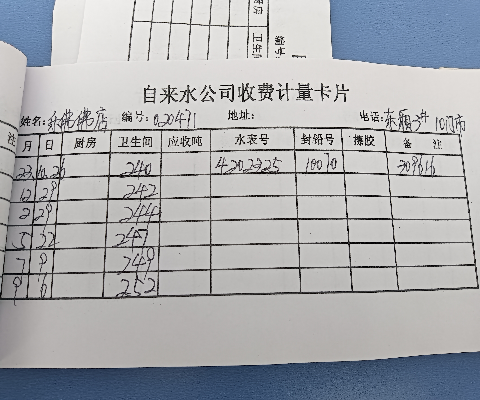 卫生间
编号
自来水公司收费计量卡片
姓名: 编号: 020471 地址: 电话: 东厢3# 10门市
月 日 厨房 卫生间 应收吨 水表号 封铅号 擦胶 备注
23.10.26 240 4202225 10070 309616
12 29 242
2 29 244
5 32 247
7 9 249
9 6 252